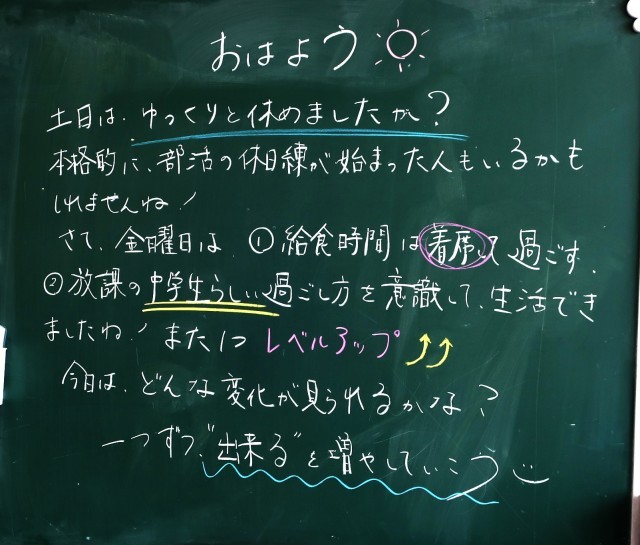 おはよう
土日は、ゆっくりと休めましたか？
本格的に、部活の休日練が始まった人もいるかも
しれませんね！
さて、金曜日は、①給食時間は着席して過ごす、
②放課の中学生らしい過ごし方を意識して、生活でき
ましたね！またに レベルアップ
今日は、どんな変化が見られるかな？
一つずつ、"出来る"を増やしていこう